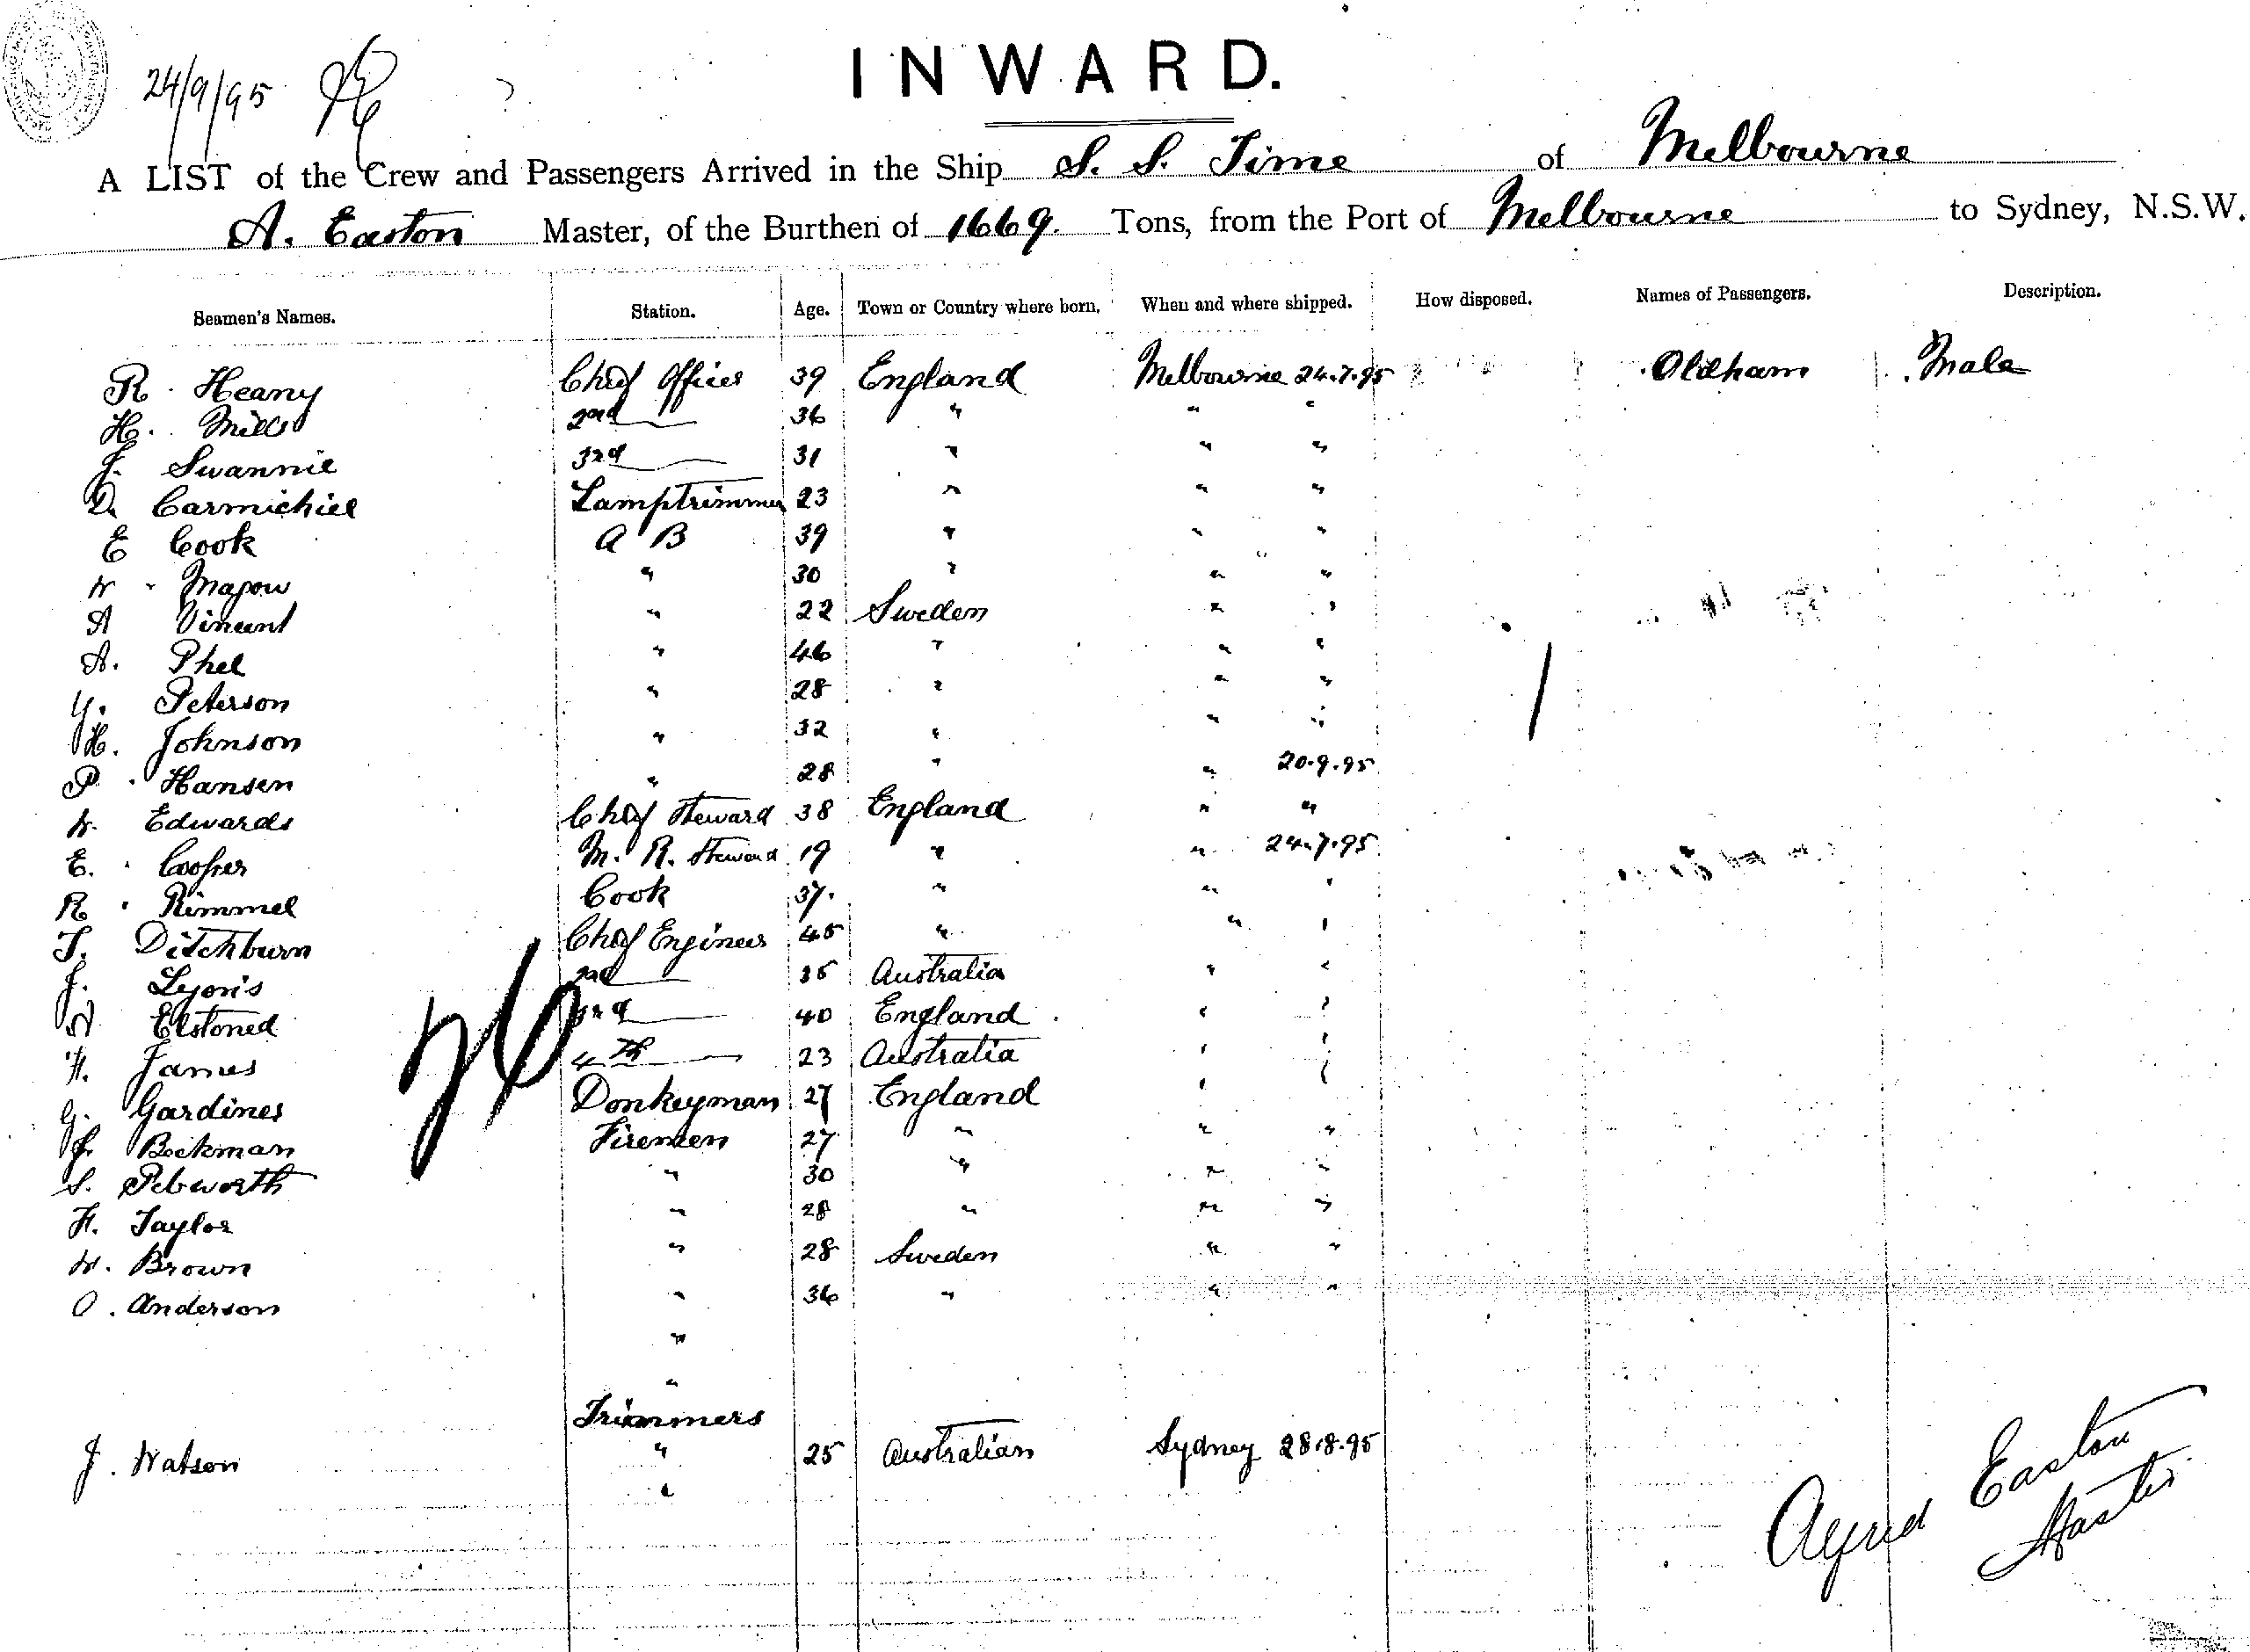 24/9/95
INWARD.
A LIST of the Crew and Passengers Arrived in the Ship S. S. Time of Melbourne
A. Easton Master, of the Burthen of 1669. Tons, from the Port of Melbourne to Sydney, N.S.W.
Seamen's Names. Station. Age. Town or Country where born. When and where shipped. How disposed. Names of Passengers. Description.
R. Heany Chief Officer 39 England Melbourne 24.7.95 Oldham Male
H. Mills 2nd — 36 " " "
J. Swannie 3rd — 31 " " "
D. Carmichiel Lamptrimmer 23 " " "
E Cook A B 39 " " "
W. Magow " 30 " " "
A Vincent " 22 Sweden " "
A. Phel " 46 " " "
Y. Peterson " 28 " " "
H. Johnson " 32 " " "
P. Hansen " 28 " " 20.9.95
W. Edwards Chief Steward 38 England " "
E. Cooper M. R. Steward 19 " " 24.7.95
R. Rimmel Cook 37. " " "
T. Ditchburn Chief Engineer 45 " " "
J. Lyons 2nd — 35 Australia " "
Elstoned 3rd — 40 England " "
H. James 4th — 23 Australia " "
G. Gardiner Donkeyman 27 England " "
J. Beckman Firemen 27 " " "
S. Pebworth " 30 " " "
H. Taylor " 28 " " "
W. Brown " 28 Sweden " "
O. Anderson " 36 " " "
"
"
Trimmers
J. Watson " 25 Australian Sydney 28.8.95
"
Alfred Easton
Master